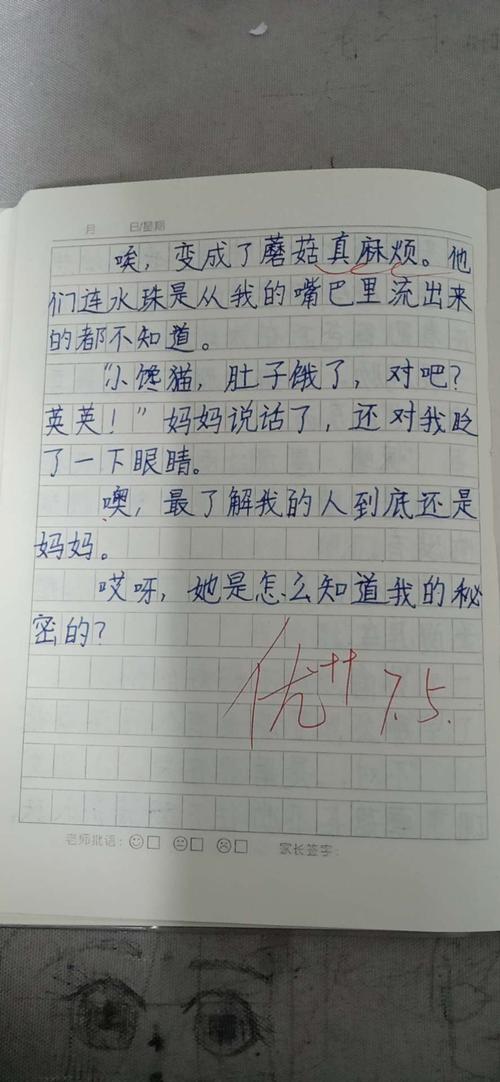 月 日/星期
唉，变成了蘑菇真麻烦。他
们连水珠是从我的嘴巴里流出来
的都不知道。
“小馋猫，肚子饿了，对吧？
英英！”妈妈说话了，还对我眨
了一下眼睛。
噢，最了解我的人到底还是
妈妈。
哎呀，她是怎么知道我的秘
密的？
优++ 7.5.
老师批语： 家长签字：